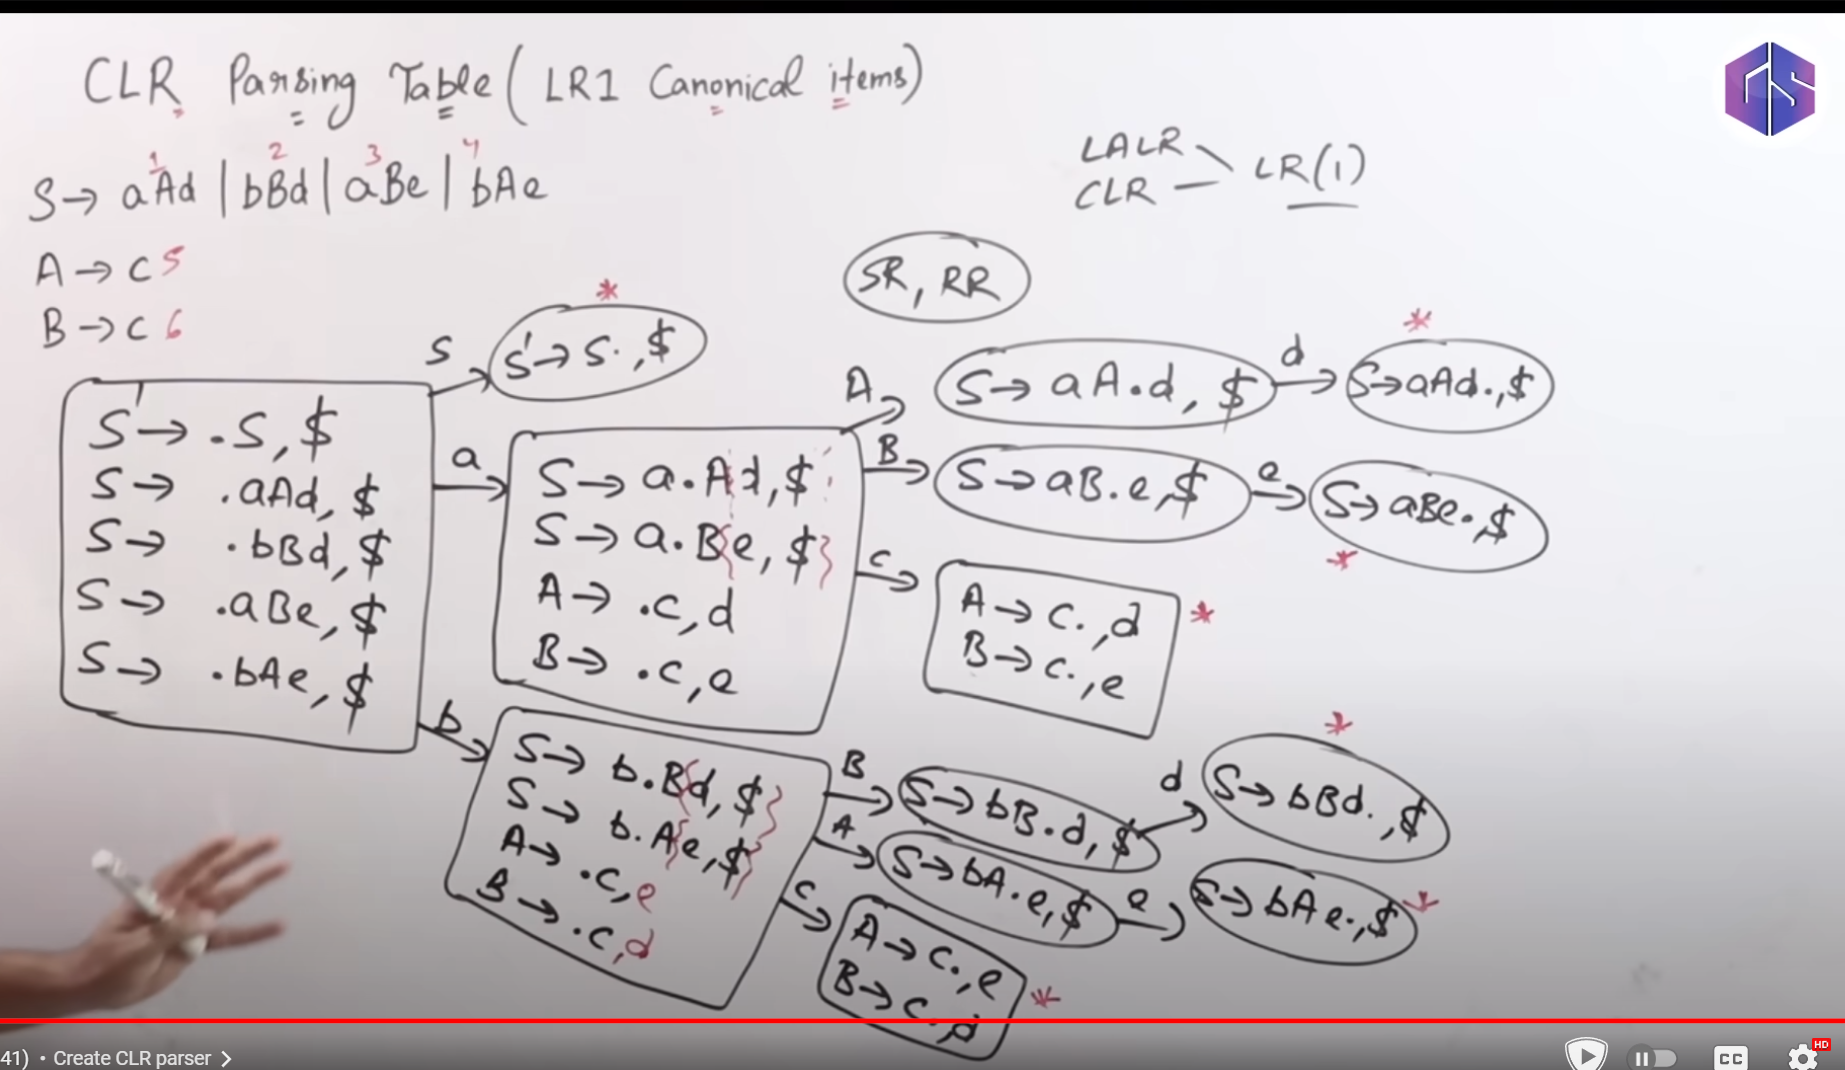 CLR Parsing Table ( LR1 Canonical items)
LALR
CLR
LR(1)
1 2 3 4
S → aAd | bBd | aBe | bAe
A → c 5
B → c 6
SR, RR
S
*
S' → S. , $
S' → .S, $
S → .aAd, $
S → .bBd, $
S → .aBe, $
S → .bAe, $
a
S → a.Ad, $
S → a.B{e, $}
A → .c, d
B → .c, e
A
S → aA.d, $
d
*
S → aAd., $
B
S → aB.e, $
e
S → aBe., $
*
c
A → c., d
B → c., e
*
b
S → b.B{d, $}
S → b.A{e, $}
A → .c, e
B → .c, d
B
S → bB.d, $
d
*
S → bBd. , $
A
S → bA.e, $
e
S → bAe., $
*
c
A → c., e
B → c., d
*
41) • Create CLR parser >
CC
HD